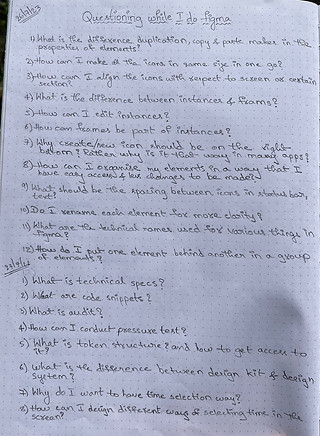 Questioning while I do figma
1) What is the difference duplication, copy & paste makes in the
properties of elements?
2) How can I make all the icons in same size in one go?
3) How can I align the icons with respect to screen or certain
section?
4) What is the difference between instances & frames?
5) How can I edit instances?
6) How can frames be part of instances?
7) Why create/new icon should be on the right
bottom? Rather why is it that way in many apps?
8) How can I organise my elements in a way that I
have easy access & less changes to be made?
9) What should be the spacing between icons in status bar,
text?
10) Do I rename each element for more clarity?
11) What are the technical names used for various things in
figma?
12) How do I put one element behind another in a group
of elements?
1) What is technical specs?
2) What are code snippets?
3) What is audit?
4) How can I conduct pressure test?
5) What is token structure? and how to get access to
it?
6) What is the difference between design kit & design
system?
7) Why do I want to have time selection way?
8) How can I design different ways of selecting time in the
screen?